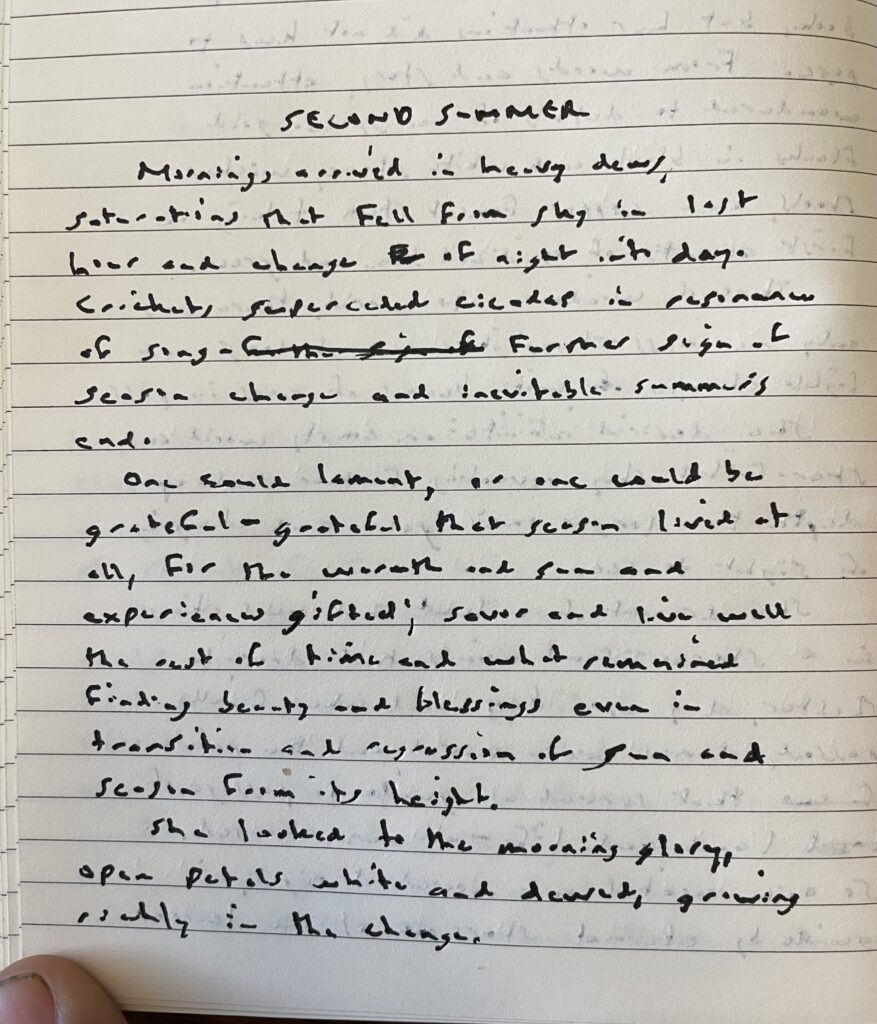 SECOND SUMMER
Mornings arrived in heavy dews,
saturations that fell from sky in last
hour and change of night into day.
Crickets superceded cicadas in resonance
of song - further sign of
season change and inevitable summer's
end.
One could lament, or one could be
grateful - grateful that season lived at
all, for the warmth and sun and
experiences gifted; savor and live well
the rest of time and what remained
finding beauty and blessings even in
transition and regression of sun and
season from its height.
She looked to the morning glory,
open petals white and dewed, growing
richly in the change.